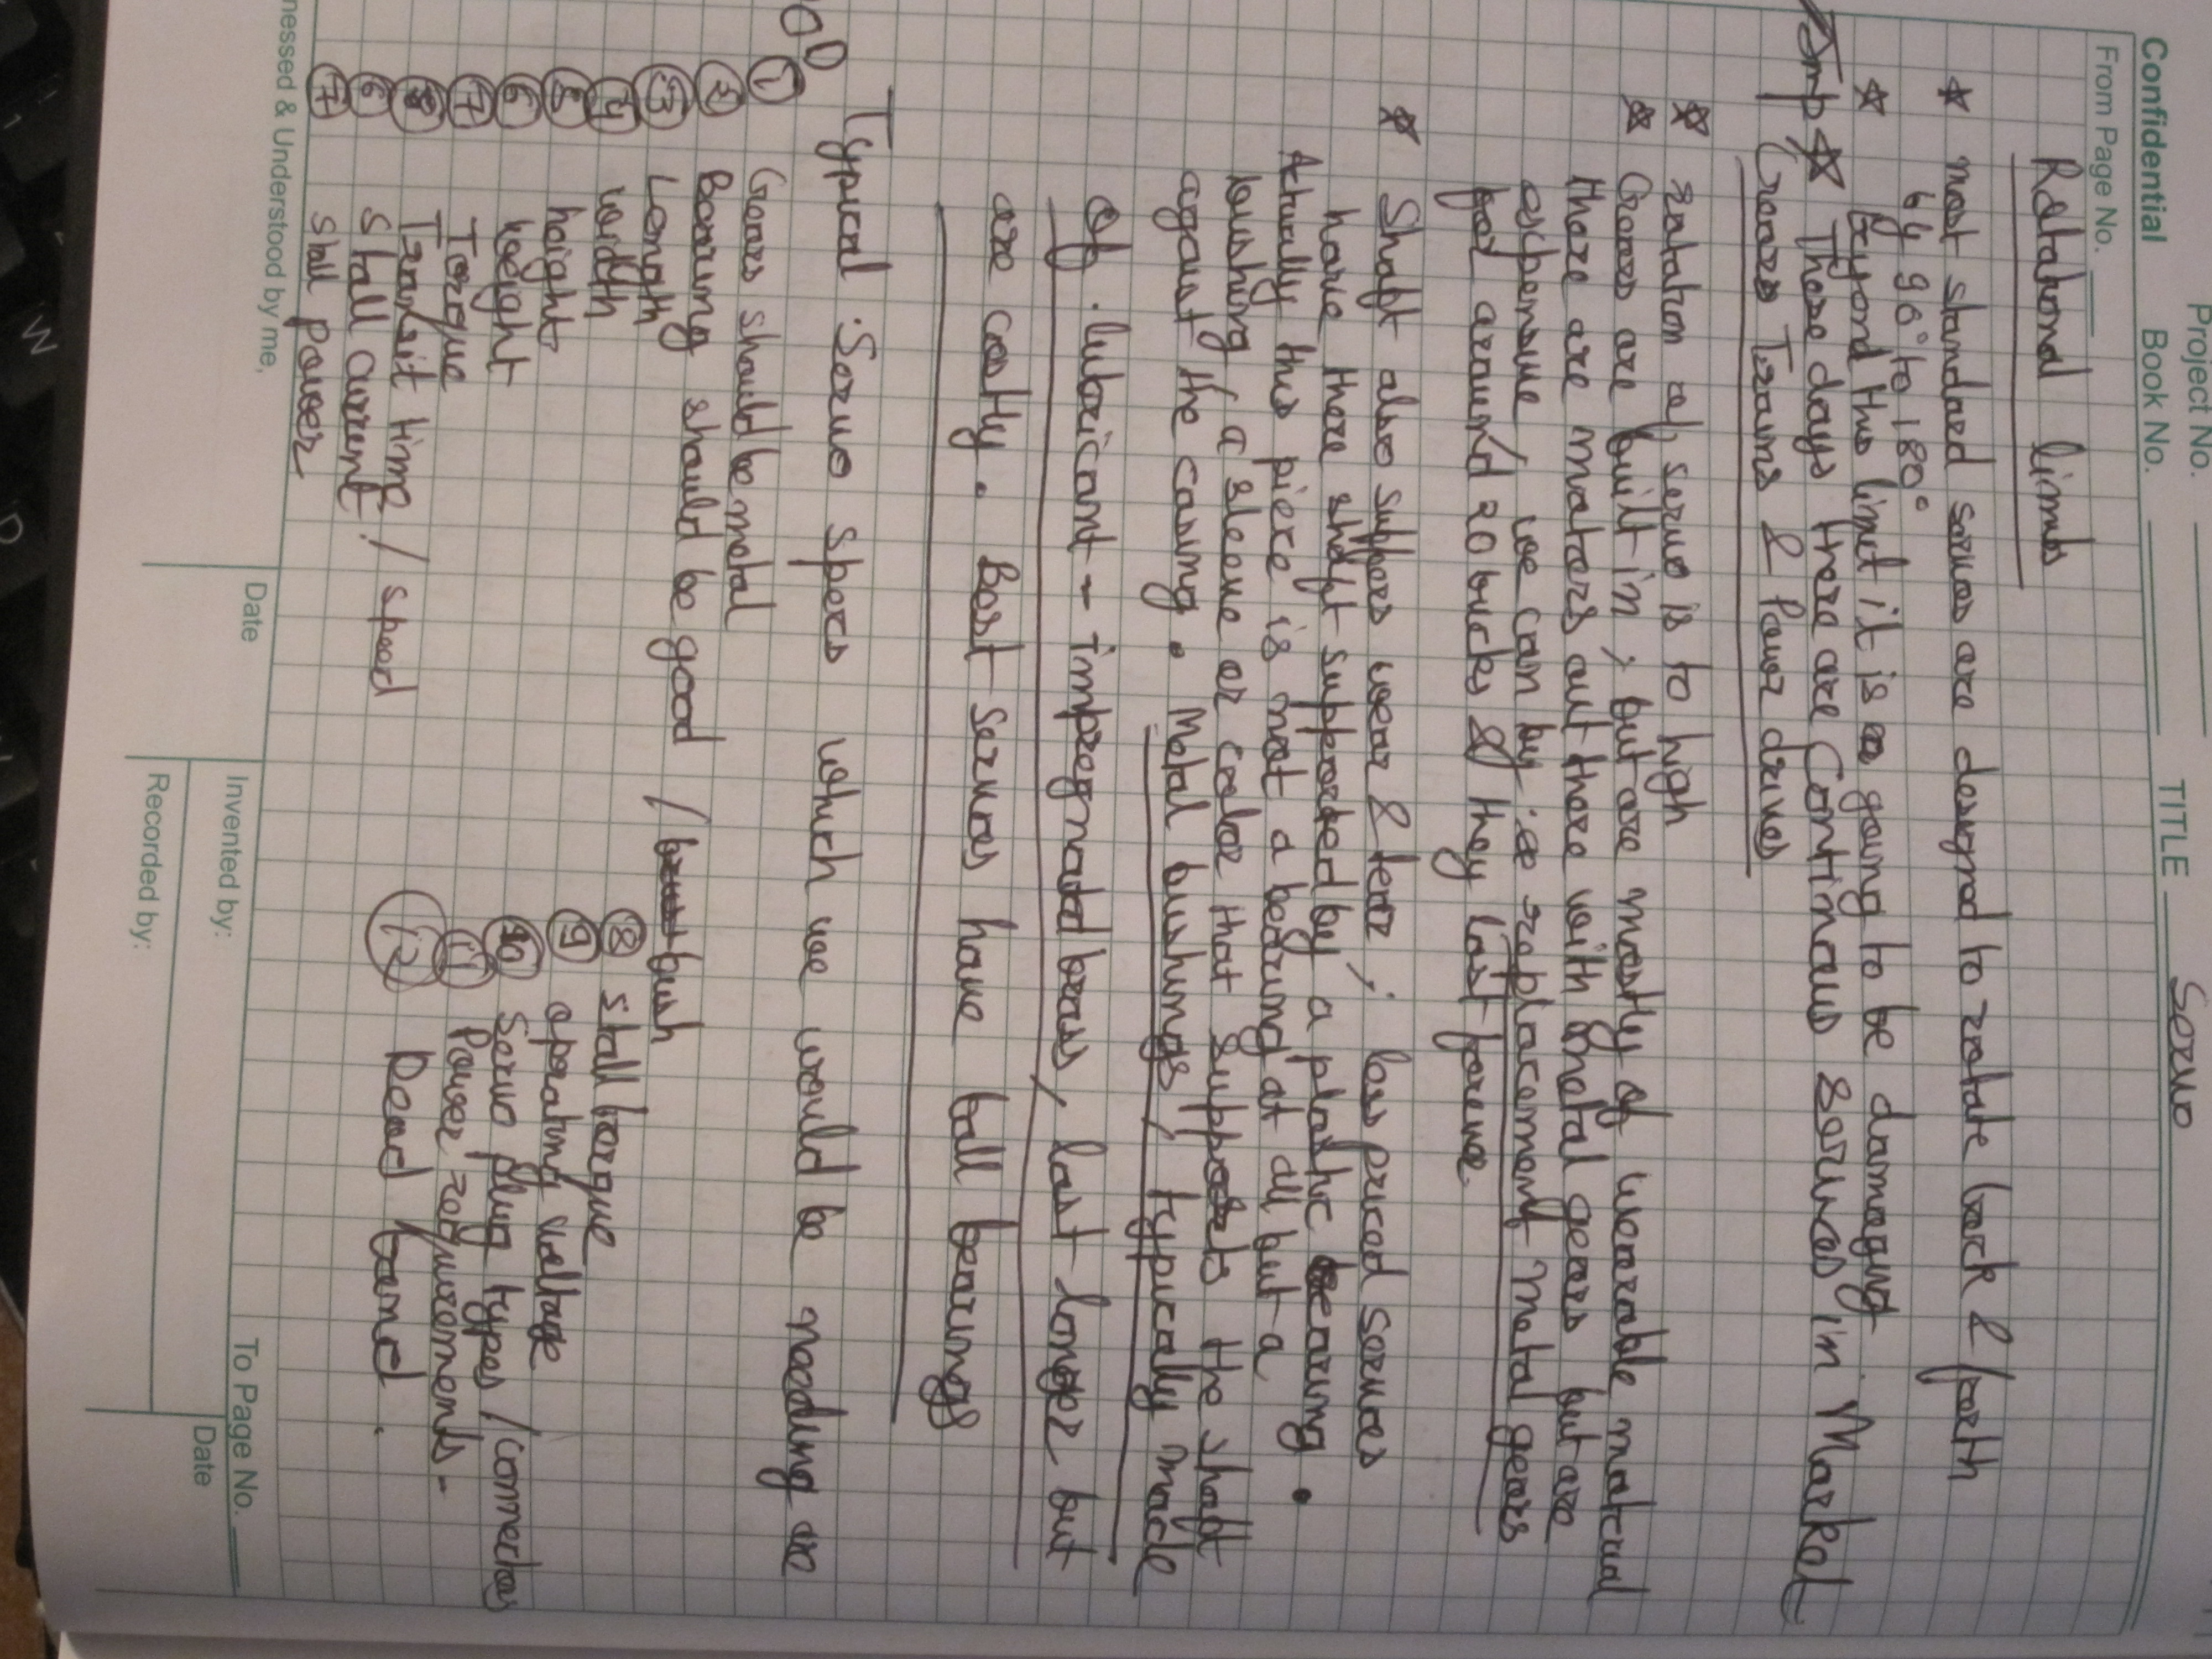 Project No.
Confidential Book No. TITLE Servo
From Page No.
Rotational limits
most standard servos are designed to rotate back & forth
by 90° to 180°
Beyond this limit it is going to be damaging
Imp These days there are Continous servos in Market
Gears Trains & Power drives
rotation of servo is to high
Gears are built in, but are mostly of wearable material
there are motors out there with metal gears but are
expensive, we can by replacement metal gears
for around 20 bucks & they last foreve
Shaft also suffers wear & tear, less priced servos
have there shaft supported by a plastic bearing.
Actually this piece is not a bearing at all but a
bushing, a sleeve or collar that supports the shaft
against the casing. Metal bushings, typically made
of lubricant-impregnated brass, last longer but
are costly. Best servos have ball bearings
Typical Servo specs which we would be needing are
① Gears should be metal
② Bearing should be good / bush
③ Length
④ width
⑤ height
⑥ weight
⑦ Torque
Transit time / speed
⑥ Stall current
⑦ Stall power
⑧ stall torque
⑨ operating voltage
⑩ Servo plug types / connectors
⑪ Power requirements -
⑫ Dead band.
nessed & Understood by me, Date Invented by: Date To Page No.
Recorded by:
W
D